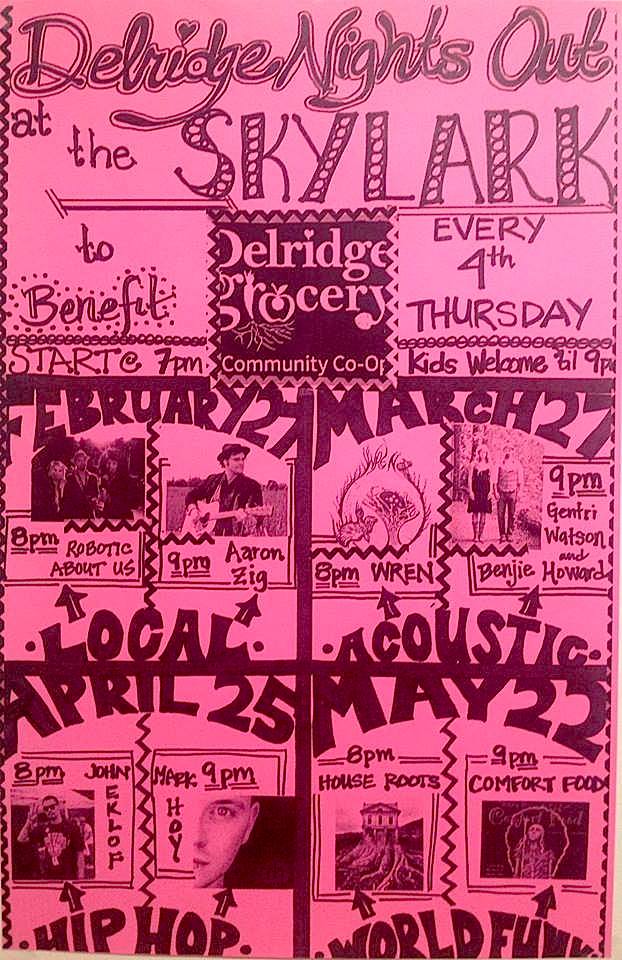 Delridge Nights Out
at the SKYLARK
to Benefit
Delridge
grocery
Community Co-Op
EVERY
4th
THURSDAY
START @ 7pm
Kids Welcome 'til 9pm
FEBRUARY 27
8pm ROBOTIC
ABOUT US
9pm Aaron
Zig
LOCAL
MARCH 27
8pm WREN
9pm
Gentri
Watson
and
Benjie Howard
ACOUSTIC
APRIL 25
8pm JOHN
EKLOF
MARK 9pm
HOY
HIP HOP
MAY 22
8pm
HOUSE ROOTS
9pm
COMFORT FOOD
Comfort Food
WORLD FUNK